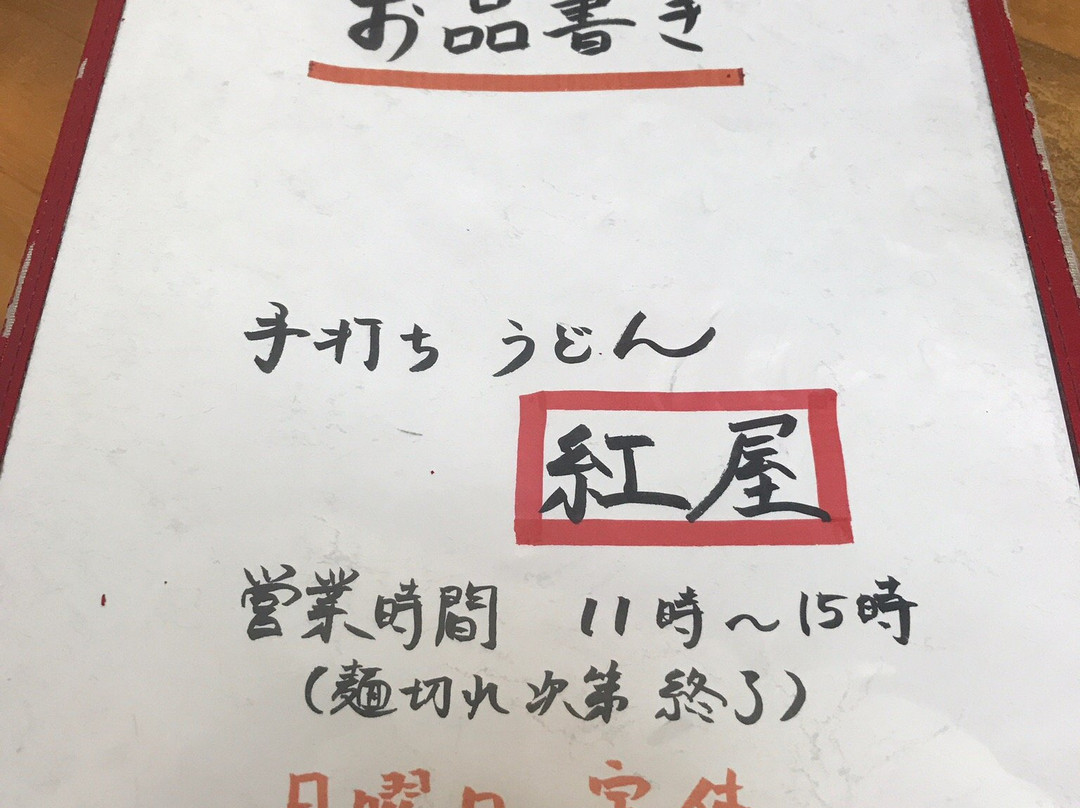 お品書き
手打ち うどん
紅屋
営業時間 11時～15時
(麺切れ次第 終了)
日曜日 定休